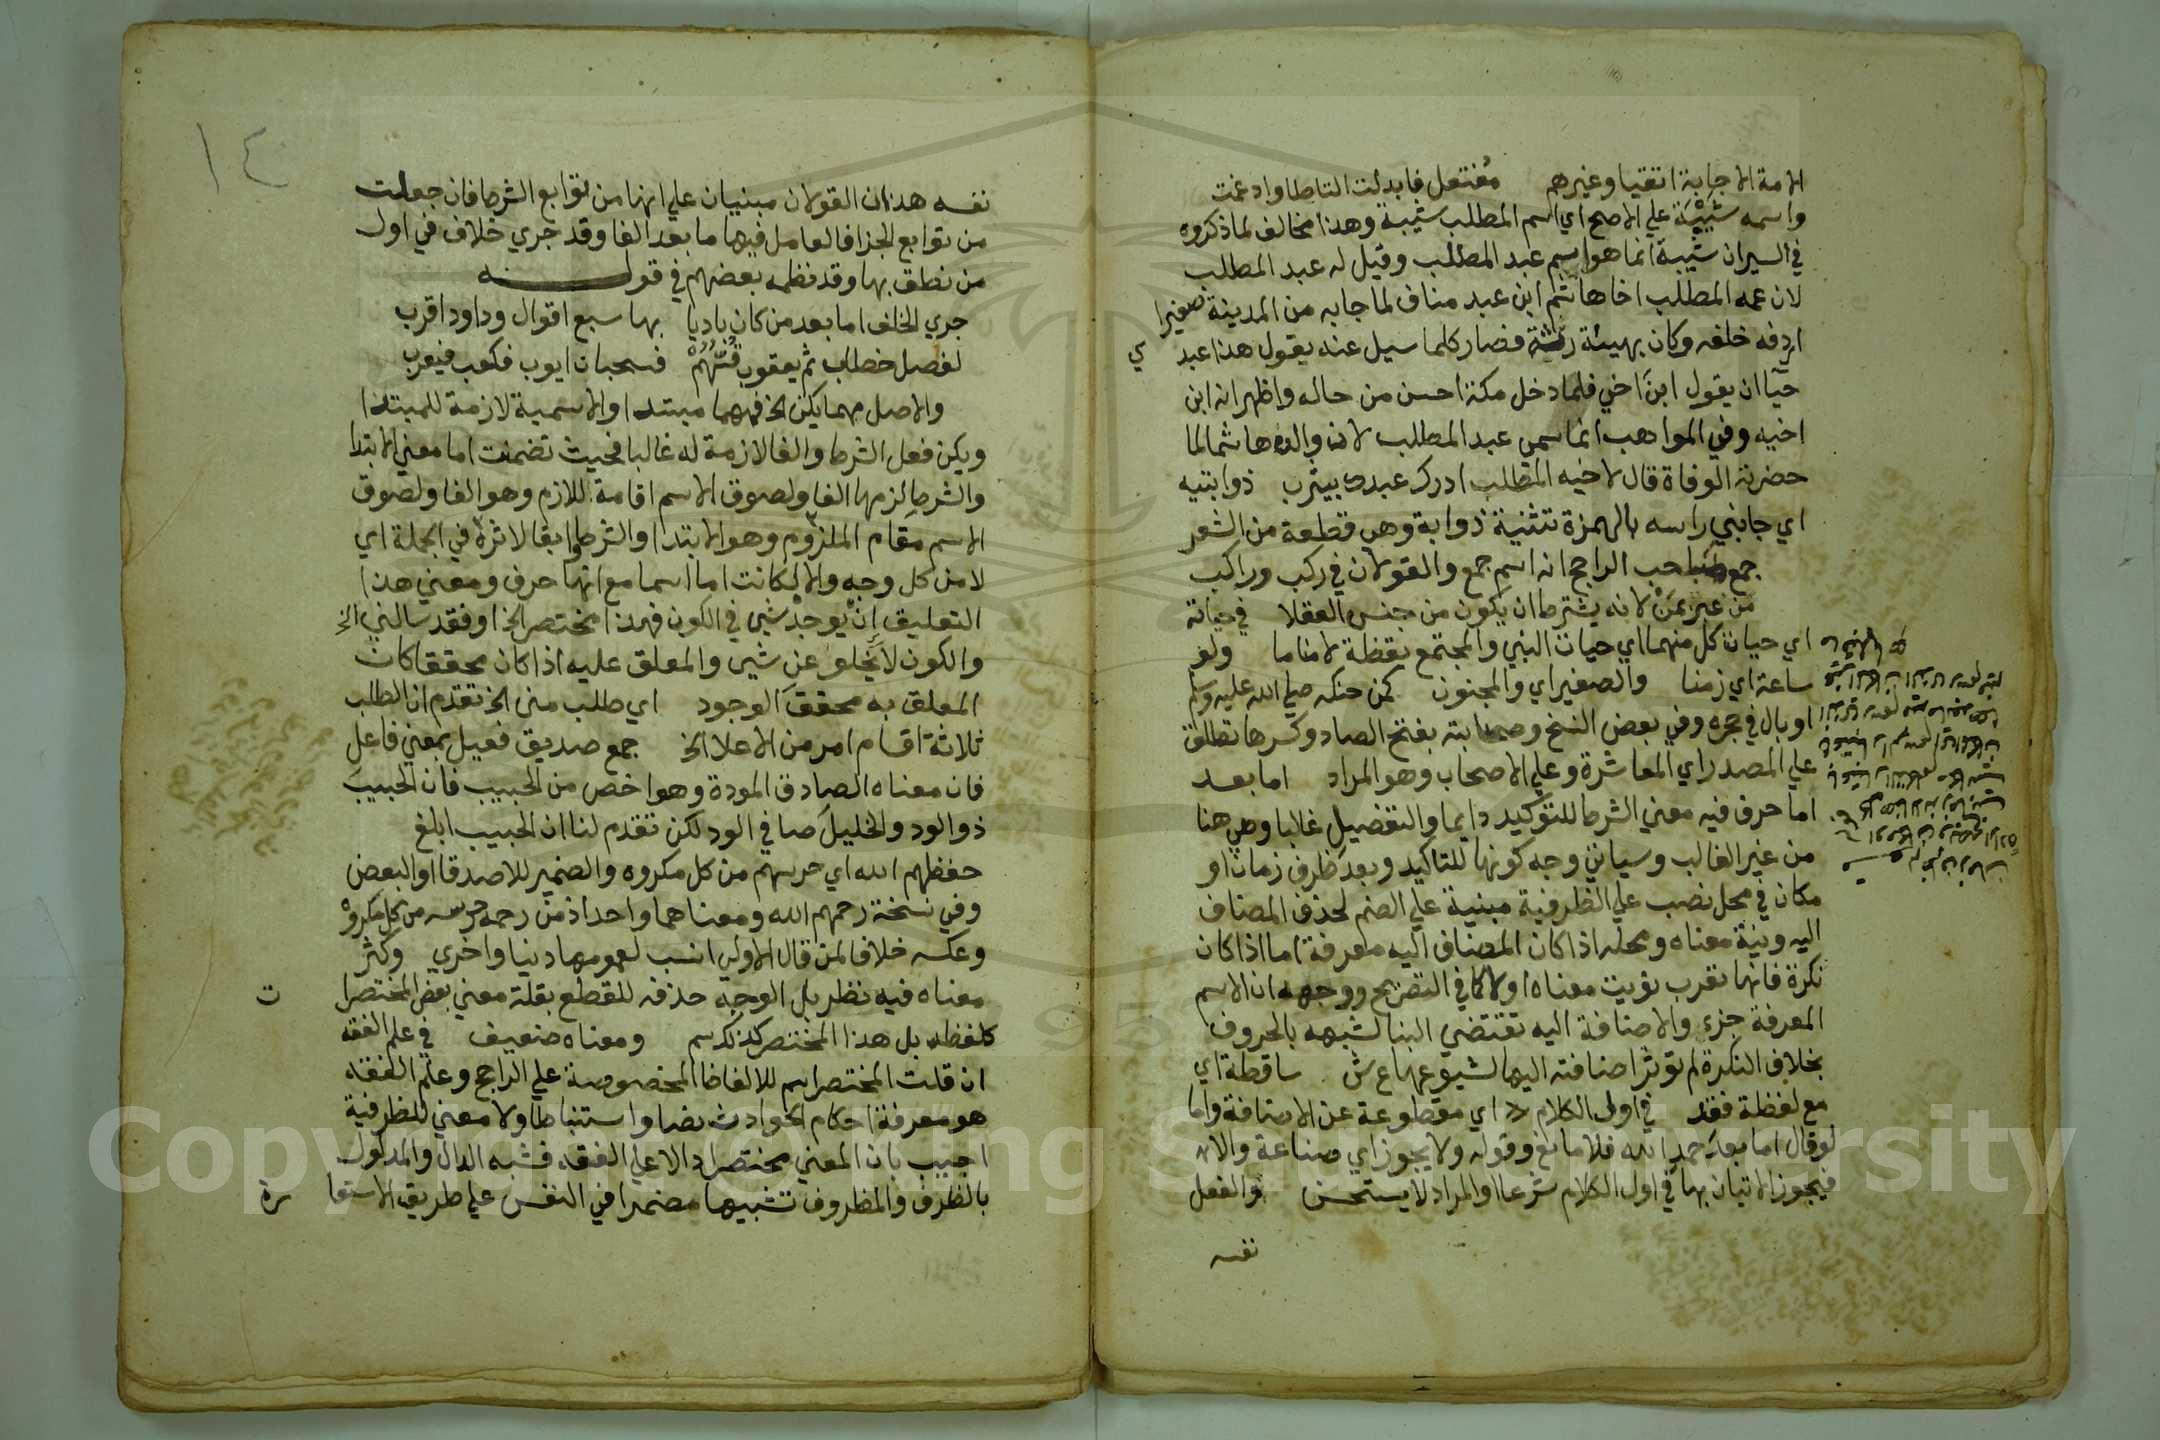 الامة الاجابة اتقيا وغيرهم مُفتعل فابدلت التاطا وادغمت
واسمه شَيْبَة علي الاصح اي اسم المطلب شيبة وهذا مخالف لما ذكروه
في السير ان شيبة انما هو اسم عبد المطلب وقيل له عبد المطلب
لان عمه المطلب اخا هاشم ابن عبد مناف لما جا به من المدينة صغيرا
اردفه خلفه وكان بهيئة رثة فصار كلما سيل عنه يقول هذا عبد ي
حيآ ان يقول ابن اخي فلما دخل مكة احسن من حاله واظهر انه ابن
اخيه وفي المواهب انما سمي عبد المطلب لان والده هاشما لما
حضرته الوفاة قال لاخيه المطلب ادرك عبدك بيثرب ذوابتيه
اي جانبي راسه بالهمزة تثنية ذوابة وهي قطعة من الشعر
جمع صاحب الراجح انه اسم جمع والقولان في ركب وراكب
من عبر بمَنْ لانه يشترط ان يكون من جنس العقلا في حياته
اي حيات كل منهما اي حيات النبي والمجتمع يقظة لا مناما ولو
ساعة اي زمنا والصغير اي والمجنون كمن حنكه صلي الله عليه وسلم
او بال في حجره وفي بعض النسخ وصحابته بفتح الصاد وكسرها تطلق
علي المصدر اي المعاشرة وعلي الاصحاب وهو المراد اما بعد
اما حرف فيه معني الشرط للتوكيد دايما والتفضيل غالبا وهي هنا
من غير الغالب وسياتي وجه كونها للتاكيد وبعد ظرف زمان او
مكان في محل نصب علي الظرفية مبنية علي الضم لحذف المضاف
اليه ونية معناه ومحله اذا كان المضاف اليه معرفة اما اذا كان
نكرة فانها تعرب نويت معناه اولا كما في التصريح ووجهه ان الاسم
المعرفة جزي والاضافة اليه تقتضي البنا لشبهه بالحروف
بخلاف النكرة لم توثر اضافته اليها لشيوعها ع ش ساقطة اي
مع لفظة فقد في اول الكلام اي مقطوعة عن الاضافة واما
لو قال اما بعد حمد الله فلا مانع وقوله ولا يجوز اي صناعة والا
فيجوز الاتيان بها في اول الكلام شرعا او المراد لا يستحسن والفعل
نفسه
١٤
نفسه هذان القولان مبنيان علي انها من توابع الشرط فان جعلت
من توابع الجزا فالعامل فيها ما بعد الفا وقد جري خلاف في اول
من نطق بها وقد نظمه بعضهم في قولـــه
جري الخلف اما بعد من كان باديا بها سبع اقوال وداود اقرب
لفصل خطاب ثم يعقوب قُسُّهُمْ فسحبان ايوب فكعب فيعرب
والاصل مهما يكن الخ فمهما مبتدا والاسمية لازمة للمبتدا
ويكن فعل الشرط والفا لازمة له غالبا فحيث تضمنت اما معني الابتدا
والشرط لزمها الفا ولصوق الاسم اقامة اللازم وهو الفا ولصوق
الاسم مقام الملزوم وهو الابتدا والشرط وابقا لاثره في الجملة اي
لا من كل وجه والا لكانت اما اسما مع انها حرف ومعني هذا
التعليق اِنْ يوجد شي في الكون فهذا مختصر الخ او فقد سالني الخ
والكون لا يخلو عن شي والمعلق عليه اذا كان محققا كان
المعلق به محقق الوجود اي طلب مني الخ تقدم ان الطلب
ثلاثة اقسام امر من الاعلا الخ جمع صديق فعيل بمعني فاعل
فان معناه الصادق المودة وهو اخص من الحبيب فان الحبيب
ذو الود والخليل صافي الود لكن تقدم لنا ان الحبيب ابلغ
حفظهم الله اي حرسهم من كل مكروه والضمير للاصدقا او البعض
وفي نسخة رحمهم الله ومعناهما واحد اذ من رحمه حرسه من كل مكروه
وعكسه خلافا لمن قال الاولي انسب لعمومها دينا واخري وكثر
معناه فيه نظر بل الوجه حذفه للقطع بقلة معني بعض المختصرا ت
كلفظه بل هذا المختصر كذلك سم ومعناه ضعيف في علم الفقه
ان قلت المختصر اسم للالفاظ المخصوصة علي الراجح وعلم الفقه
هو معرفة احكام الحوادث نصا واستنباطا ولا معني للظرفية
اجيب بان المعني مختصر دالا علي الفقه فشبه الدال والمدلول
بالظرف والمظروف تشبيها مضمرا في النفس علي طريق الاستعا رة